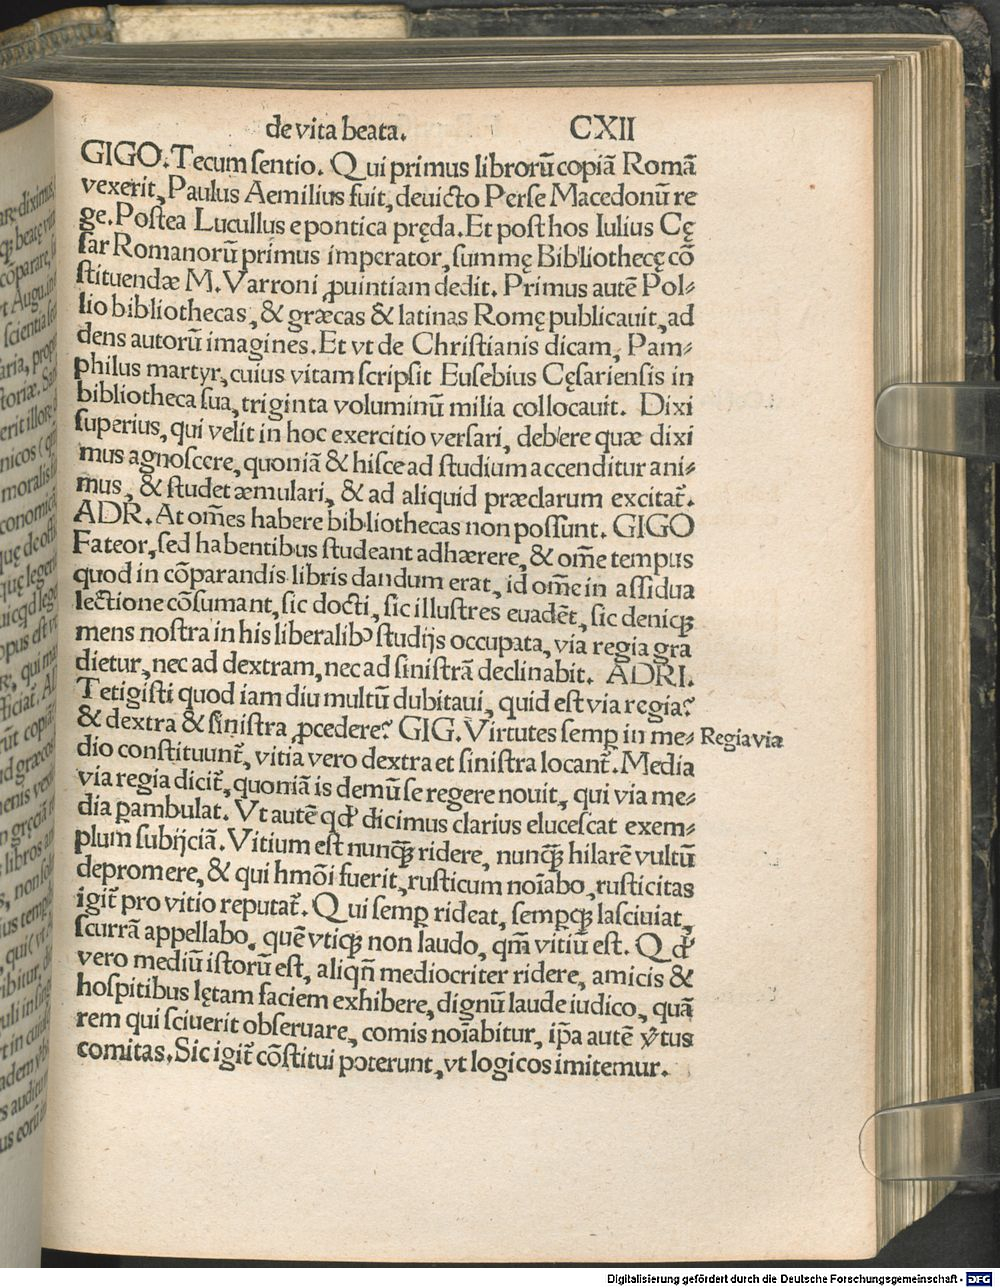 de vita beata. CXII
GIGO. Tecum sentio. Qui primus librorū copiā Romā
vexerit, Paulus Aemilius fuit, deuicto Perse Macedonū re
ge. Postea Lucullus e pontica pręda. Et post hos Iulius Cę
sar Romanorū primus imperator, summę Bibliothecę cō
stituendæ M. Varroni ꝓuintiam dedit. Primus autē Pol⸗
lio bibliothecas, & græcas & latinas Romę publicauit, ad
dens autorū imagines. Et vt de Christianis dicam, Pam⸗
philus martyr, cuius vitam scripsit Eusebius Cęsariensis in
bibliotheca sua, triginta voluminū milia collocauit. Dixi
superius, qui velit in hoc exercitio versari, debere quæ dixi
mus agnoscere, quoniā & hisce ad studium accenditur ani⸗
mus, & studet æmulari, & ad aliquid præclarum excitat᷑.
ADR. At om̄es habere bibliothecas non possunt. GIGO
Fateor, sed habentibus studeant adhærere, & om̄e tempus
quod in cōparandis libris dandum erat, id om̄e in assidua
lectione cōsumant, sic docti, sic illustres euadēt, sic deniqꝫ
mens nostra in his liberalibꝰ studijs occupata, via regia gra
dietur, nec ad dextram, nec ad sinistrā declinabit. ADRI.
Tetigisti quod iam diu multū dubitaui, quid est via regia?
& dextra & sinistra ꝓcedere? GIG. Virtutes semꝑ in me⸗
dio constituunt᷑, vitia vero dextra et sinistra locant᷑. Media
via regia dicit᷑, quoniā is demū se regere nouit, qui via me⸗
dia ꝑambulat. Vt autē qđ dicimus clarius elucescat exem⸗
plum subijciā. Vitium est nunqꝫ̄ ridere, nunqꝫ̄ hilarē vultū
depromere, & qui hmōi fuerit, rusticum noīabo, rusticitas
igit᷑ pro vitio reputat᷑. Qui semꝑ rideat, semꝑqꝫ lasciuiat,
scurrā appellabo, quē vtiqꝫ non laudo, qm̄ vitiū est. Qđ
vero mediū istorū est, aliqn̄ mediocriter ridere, amicis &
hospitibus lętam faciem exhibere, dignū laude iudico, quā
rem qui sciuerit obseruare, comis noīabitur, ip̄a autē v̓tus
comitas. Sic igit᷑ cōstitui poterunt, vt logicos imitemur.
Regia via
Digitalisierung gefördert durch die Deutsche Forschungsgemeinschaft - DFG